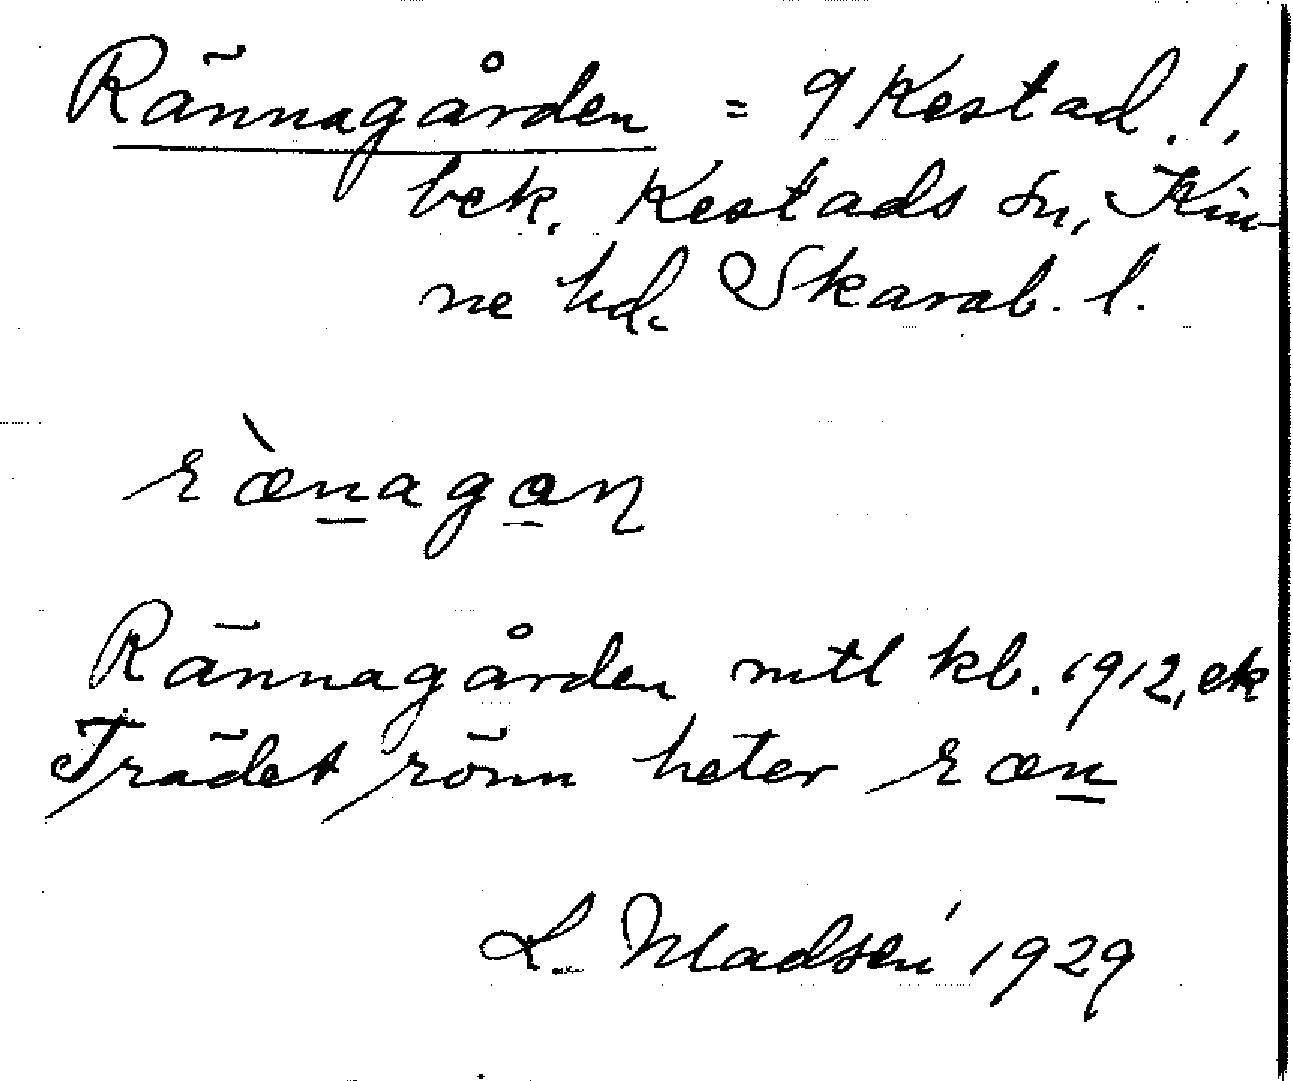 Rännagården = 9 Kestad. 1,
bek. Kestads sn, Kin-
ne hd. Skarab. l.
ræ̀nagαn
Rännagården mtl kb. 1912, ek
Trädet rönn heter ræn
L. Madsén 1929